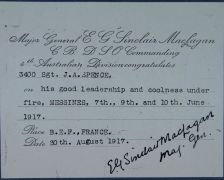 Major General E G Sinclair Maclagan
C.B. D.S.O Commanding
4th Australian Division congratulates
3400 Sgt. J.A. SPENCE,
on his good leadership and coolness under
fire, MESSINES, 7th., 9th. and 10th. June
1917.
Place B.E.F., FRANCE.
Date 20th. August 1917.
EG Sinclair Maclagan
Maj. Gen.